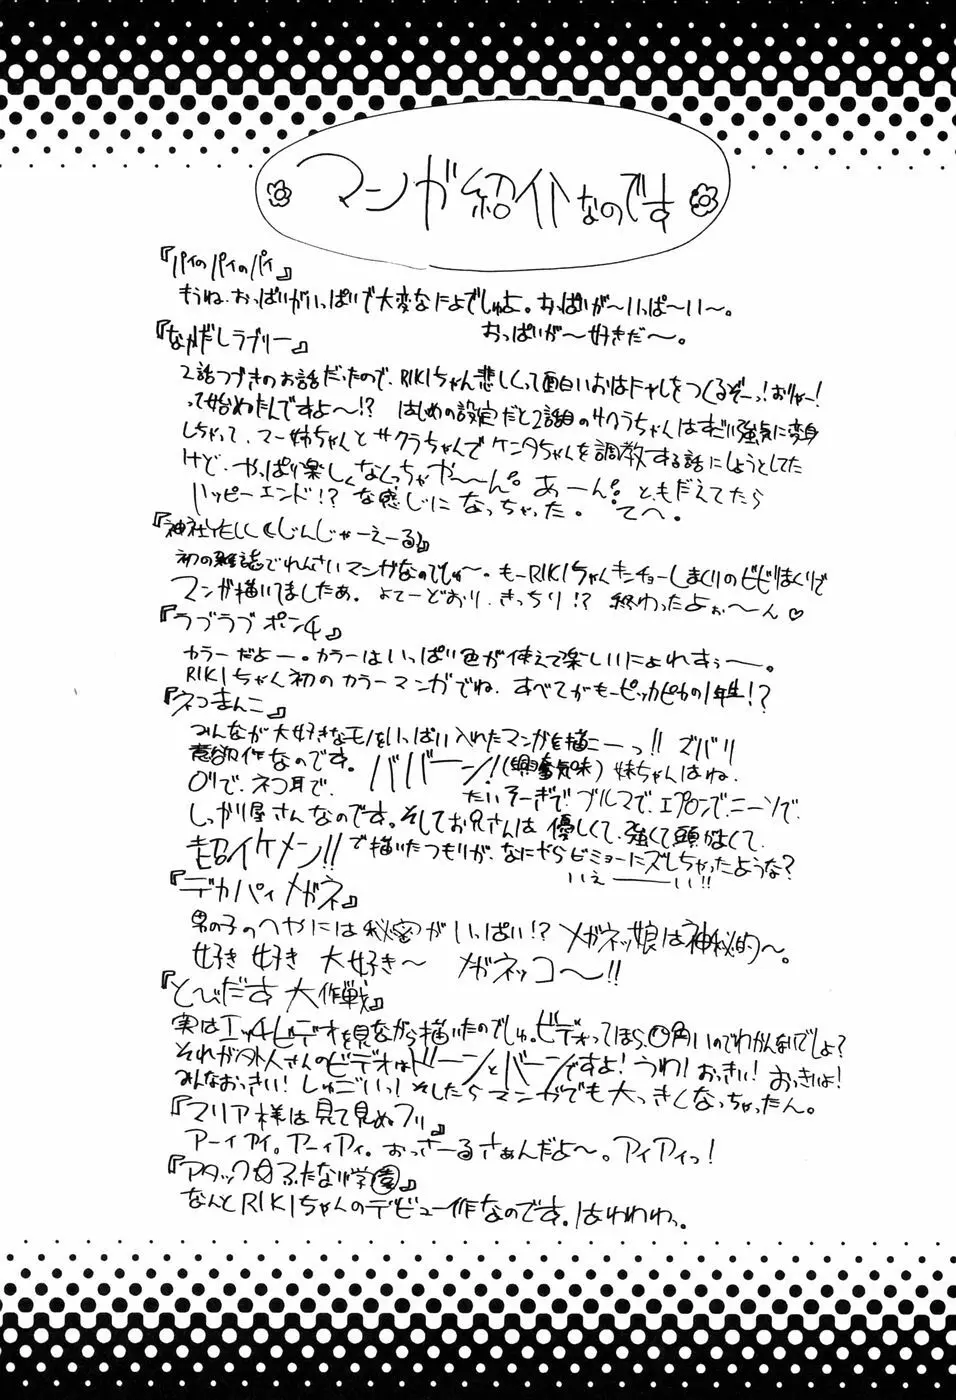 マンガ紹介なのです
『パイのパイのパイ』
もうね、おっぱいがいっぱいで大変なによでしゅよ。おっぱいが〜いっぱ〜い〜。
おっぱいが〜好きだ〜。
『なかだしラブリー』
2話つづきのお話だったので、RIKIちゃん悲しくって面白いおはなしをつくるぞーっ!おりゃー!
って始めたんですよ〜!? はじめの設定だと2話目のサクラちゃんはすごい強気に変身
しちゃって、マー姉ちゃんとサクラちゃんでケンタちゃんを調教する話にしようとしてた
けど、やっぱり楽しくなくっちゃや〜〜ん。あーん。ともだえてたら
ハッピーエンド!? な感じになっちゃった。てへ。
じんじゃーえーる』
初の雑誌でれんさいマンガなのでしゅ〜。もーRIKIちゃんキンチョーしまくりのビビりまくりで
マンガ描いてましたぁ。よてーどおり、きっちり!? 終わったよぉ〜ん♡
『ラブラブポンチ』
カラーだよー。カラーはいっぱい色が使えて楽しいにょれすぅー。
RIKIちゃん初のカラーマンガでね、すべてがもーピッカピカの1年生!?
『ネコまんこ』
みんなが大好きなモノをいっぱい入れたマンガを描こーっ!! ズバリ
意欲作なのです。ババーン!(興奮気味) 妹ちゃんはね、
ロリで、ネコ耳で、たいそーぎで、ブルマで、エプロンで、ニーソで、
しっかり屋さんなのです。そしてお兄さんは優しくて、強くて頭がよくて、
超イケメン!!で描いたつもりが、なにやらビミョーにズレちゃったような?
いぇーーい!!
『デカパイメガネ』
男の子のへやには秘密がいっぱい!? メガネッ娘は神秘的〜。
好き 好き 大好き〜 メガネッコ〜!!
『とびだす大作戦』
実はエッチビデオを見ながら描いたのでしゅ。ビデオってほら、四角いのでわかんないでしょ?
それが外人さんのビデオはドーンとバーンですよ!うわ!おっきい!おっきいよ!
みんなおっきい!しゅごいっ!そしたらマンガでも大っきくなっちゃったん。
『マリア様は見て見ぬフリ』
アーイアイ。アーイアイ。おっさーるさぁんだよ〜。アイアイっ!
『アタック☆ふたなり学園』
なんとRIKIちゃんのデビュー作なのです。はわわわっ。